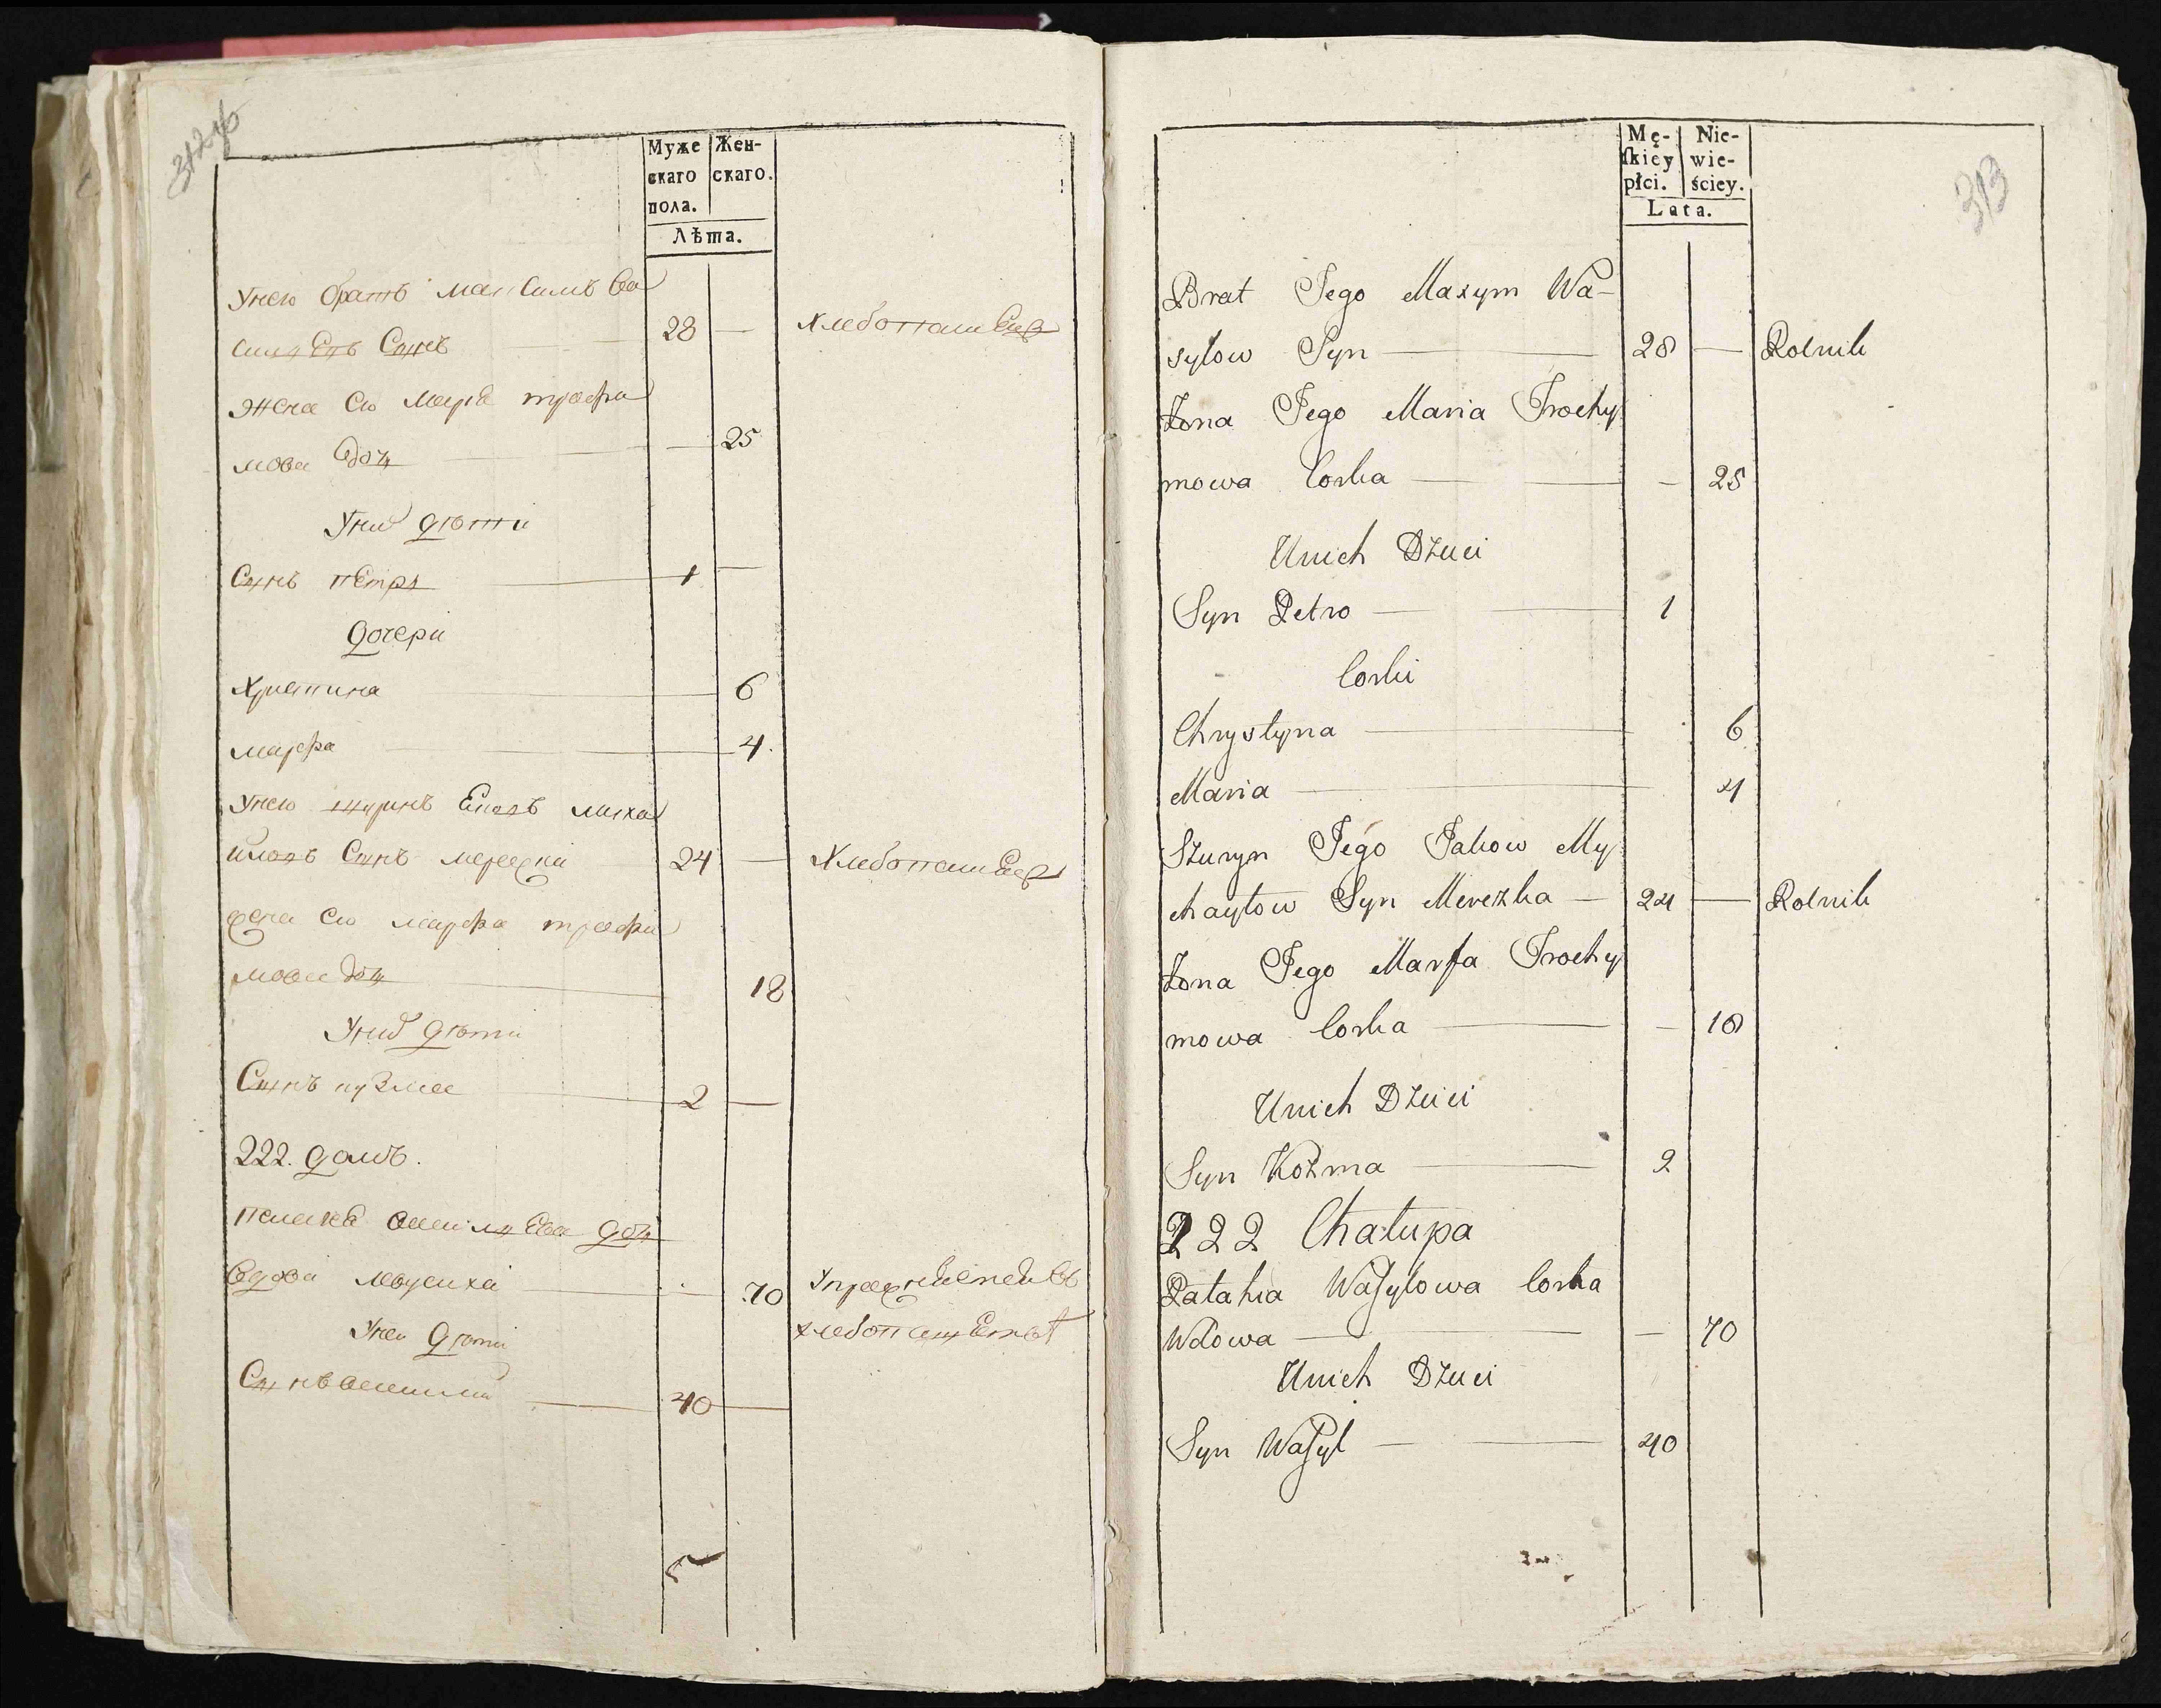 312об
Муже
скаго
пола.
Жен-
скаго.
Лѣта.
Унею братъ максимъ ва
силиевъ Сынъ 28 — Хлебопашецъ
жена ею марiа трофи
мова дочь — 25
Унихъ дѣти
Сынъ петръ 1 —
дочери
Христина 6
марфа 4.
Унею шуринъ Яковъ миха
йловъ Сынъ мережка 24 — Хлебопашецъ
жена ею марфа трофи
мова дочь 18
Унихъ дѣти
Сынъ кузма 2 —
222. домъ.
палажка василиева дочь
вдова 70
Унеи дѣти
Сынъ василий 40 —
313
Mę-
skiey
płci.
Nie-
wie-
ściey.
Lata.
Brat Jego Maxym Wa-
sylow Syn — 28 — Rolnik
Żona Jego Maria Trochy
mowa Corka — 25
Unich Dzieci
Syn Petro — 1
Corki
Chrystyna — 6
Maria — 4
Szuryn Jego Jakow My
chayłow Syn Merezka — 24 — Rolnik
Żona Jego Marfa Trochy
mowa Corka — 18
Unich Dzieci
Syn Kozma — 2
222 Chałupa
Pałahia Wasylowa Corka
Wdowa — 70
Unich Dzieci
Syn Wasyl — 40